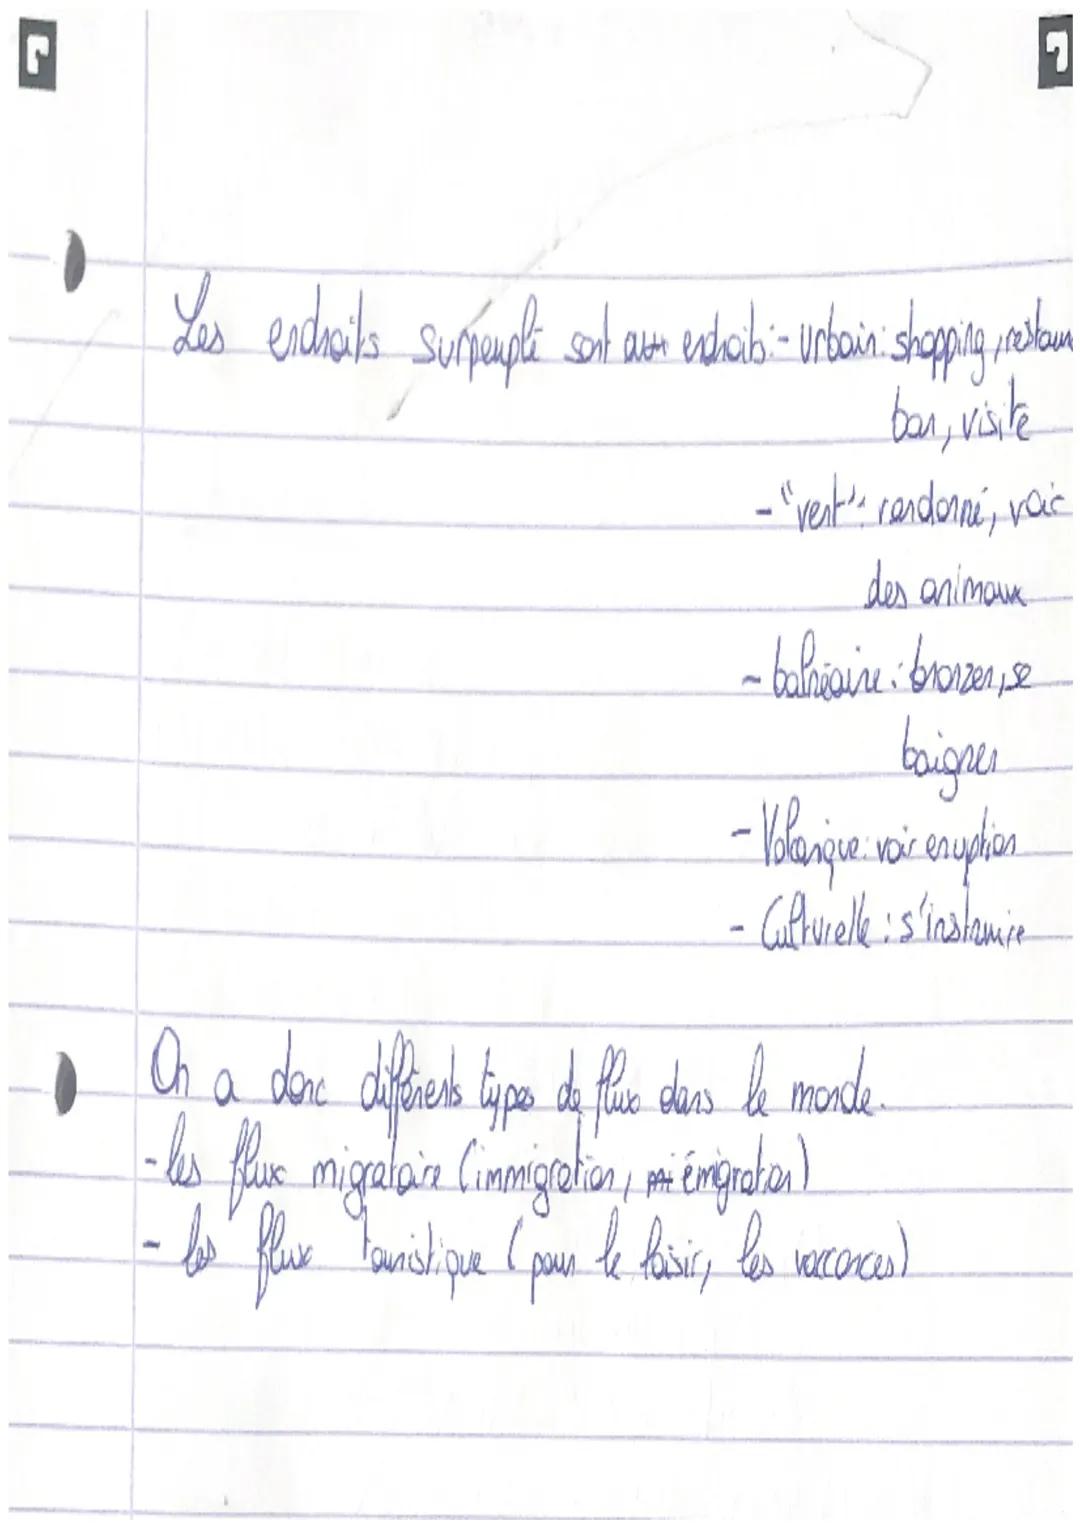 Les endroits surpeuplé sont aux endroits:- Urbain: shopping, restaur
bar, visite
-"vert": randonné, voir
des animaux
- balnéaire: bronzer, se
baigner
- Volcanique: voir eruption
- Culturelle: s'instruire
On a donc différents types de flux dans le monde.
- les flux migratoire (immigration, émigration)
- les flux touristique (pour le loisir, les vaccances)